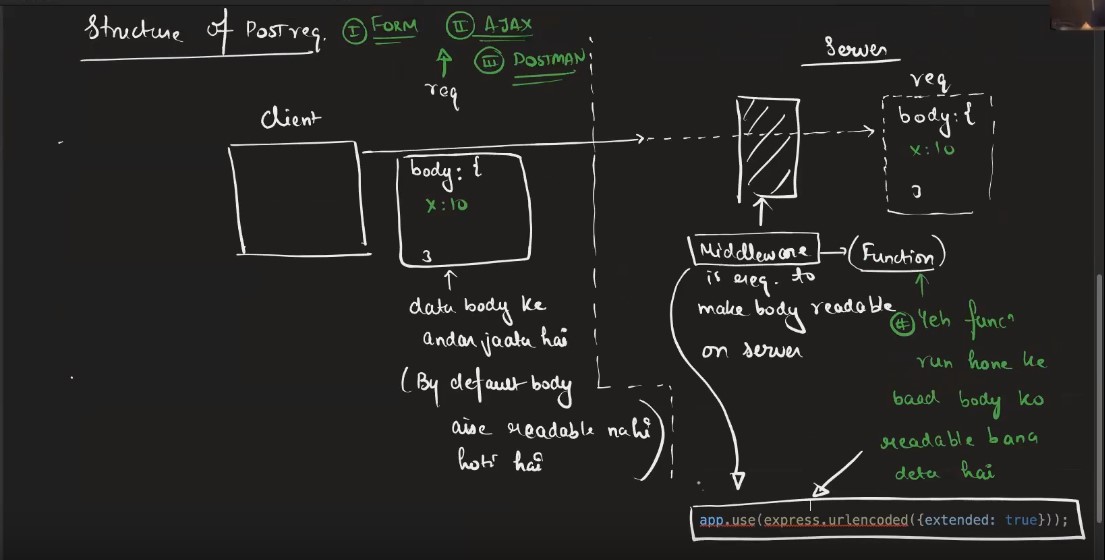 Structure of Post req. I FORM II AJAX
III POSTMAN
req
Client
body: {
x:10
}
data body ke
andar jaata hai
(By default body
aise readable nahi
hoti hai)
Server
req
body: {
x:10
}
Middleware → (Function)
is req. to
make body readable
on server
# Yeh funcⁿ
run hone ke
baad body ko
readable bana
deta hai
app.use(express.urlencoded({extended: true}));